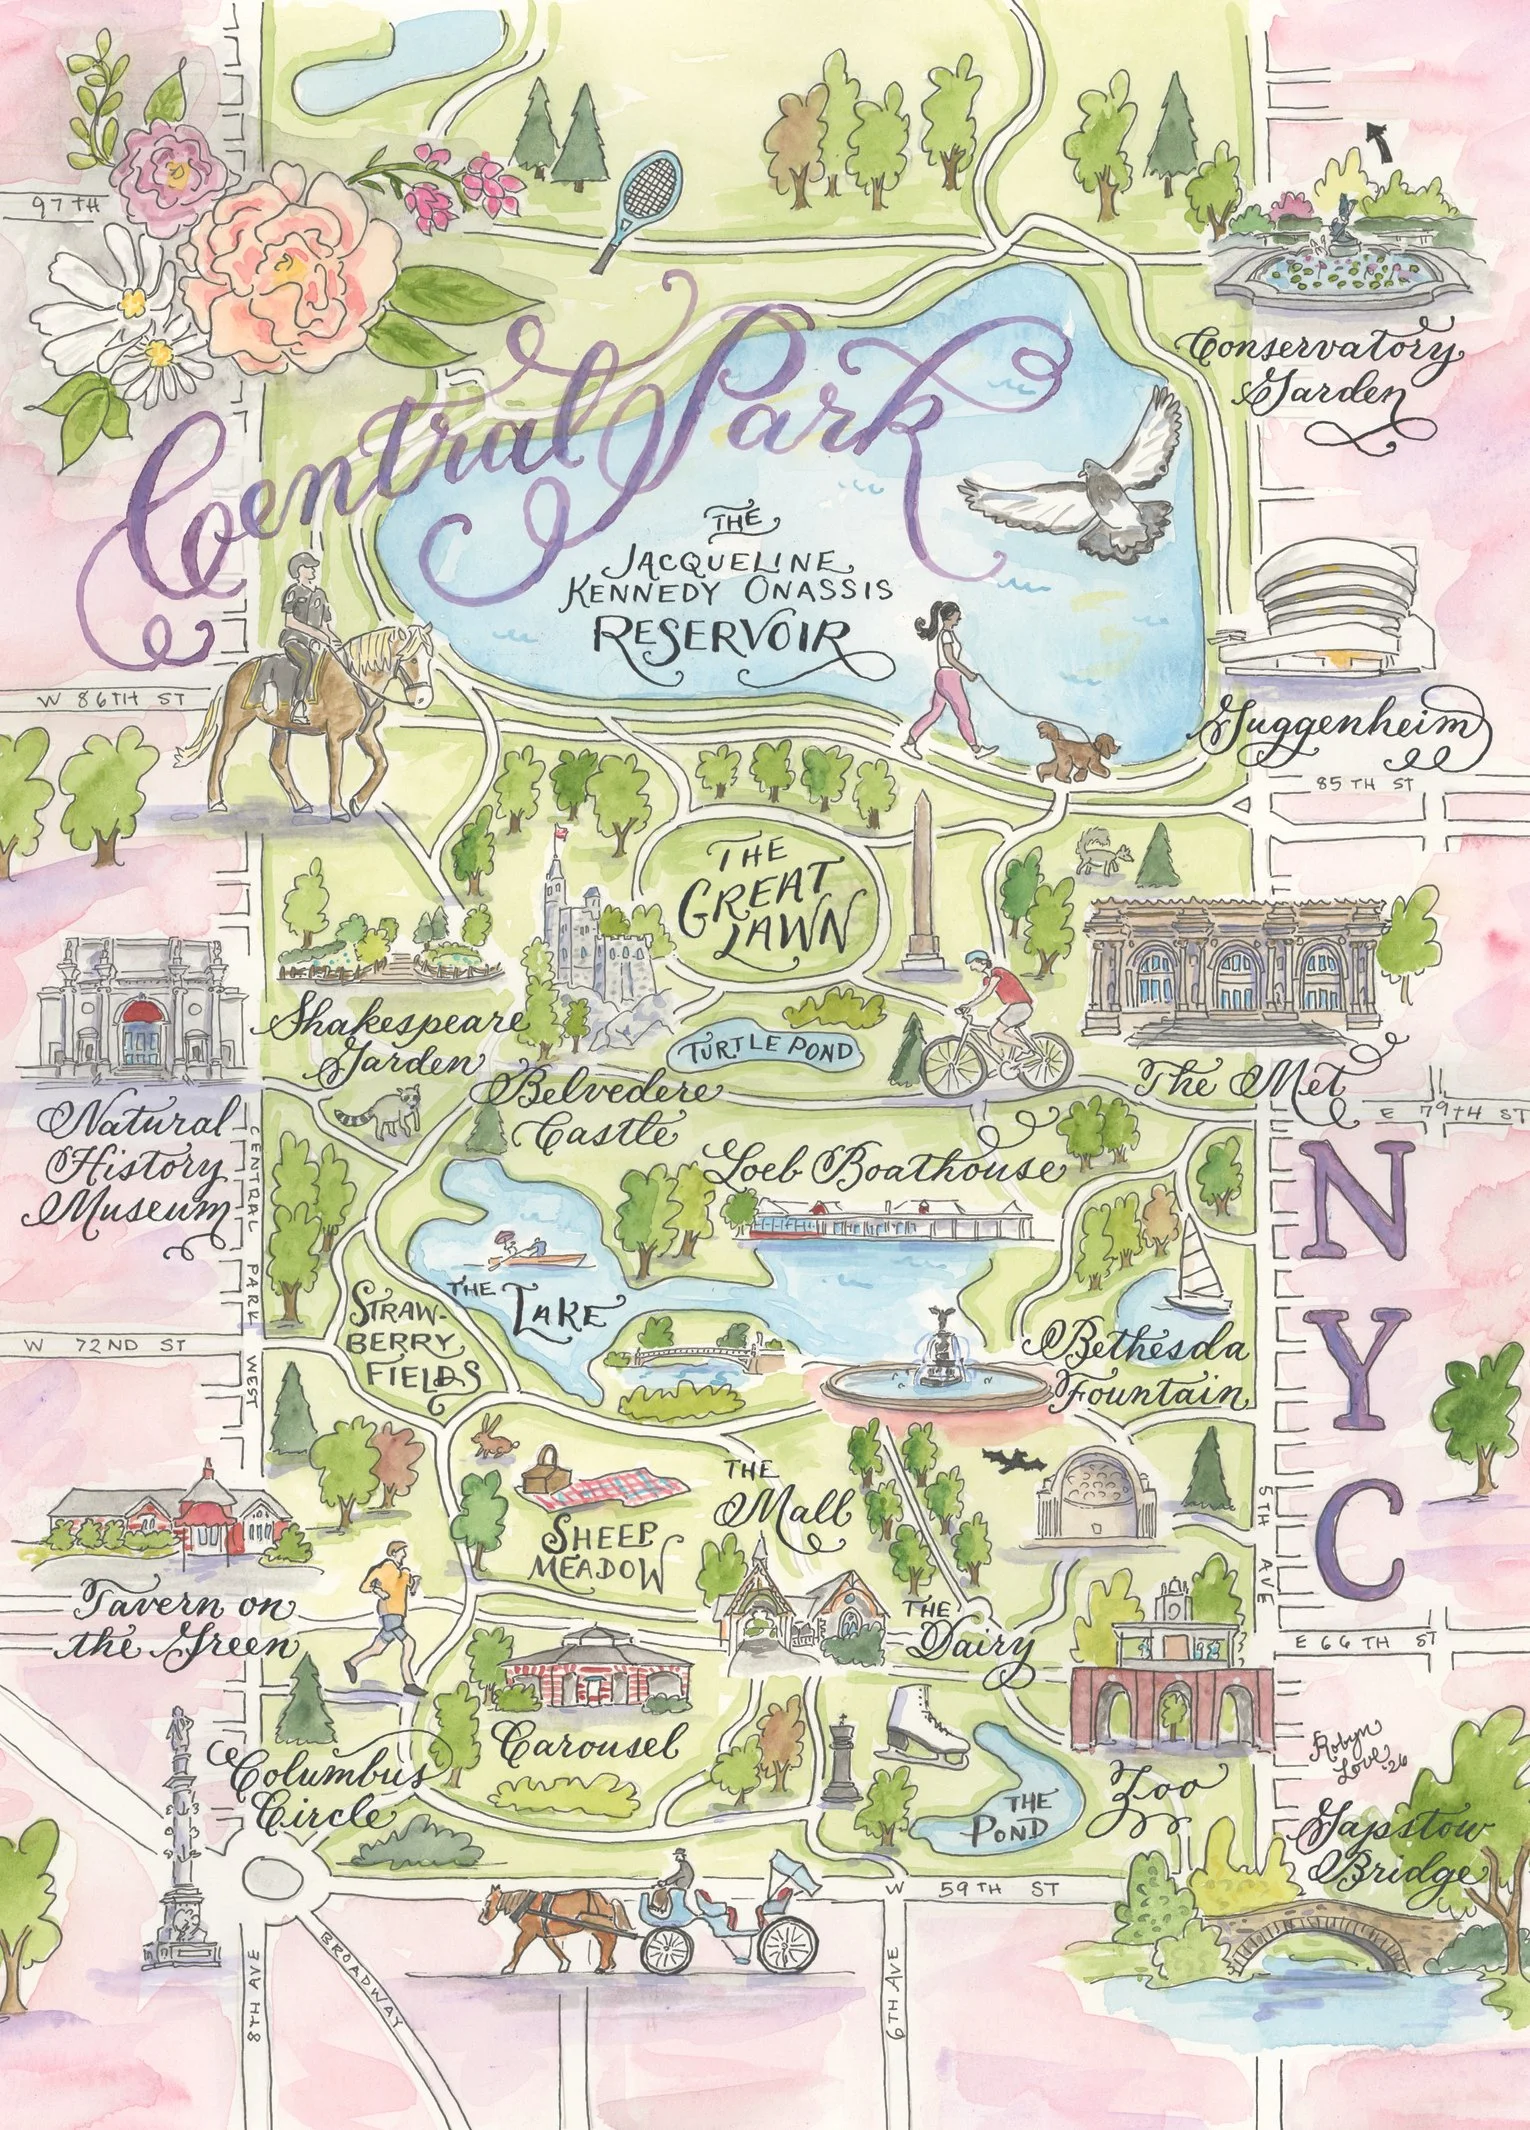 97TH
Central Park
Conservatory
Garden
THE
JACQUELINE
KENNEDY ONASSIS
RESERVOIR
W 86TH ST
Guggenheim
85 TH ST
THE
GREAT
LAWN
Shakespeare
Garden
TURTLE POND
Belvedere
Castle
The Met
E 79TH ST
Natural
History
Museum
CENTRAL PARK WEST
Loeb Boathouse
NYC
THE LAKE
STRAW-
BERRY
FIELDS
W 72ND ST
Bethesda
Fountain
THE
Mall
SHEEP
MEADOW
5TH AVE
Tavern on
the Green
THE
Dairy
E 66TH ST
Carousel
Columbus
Circle
THE
POND
Zoo
Robyn
Love '26
Gapstow
Bridge
W 59TH ST
8TH AVE
BROADWAY
6TH AVE